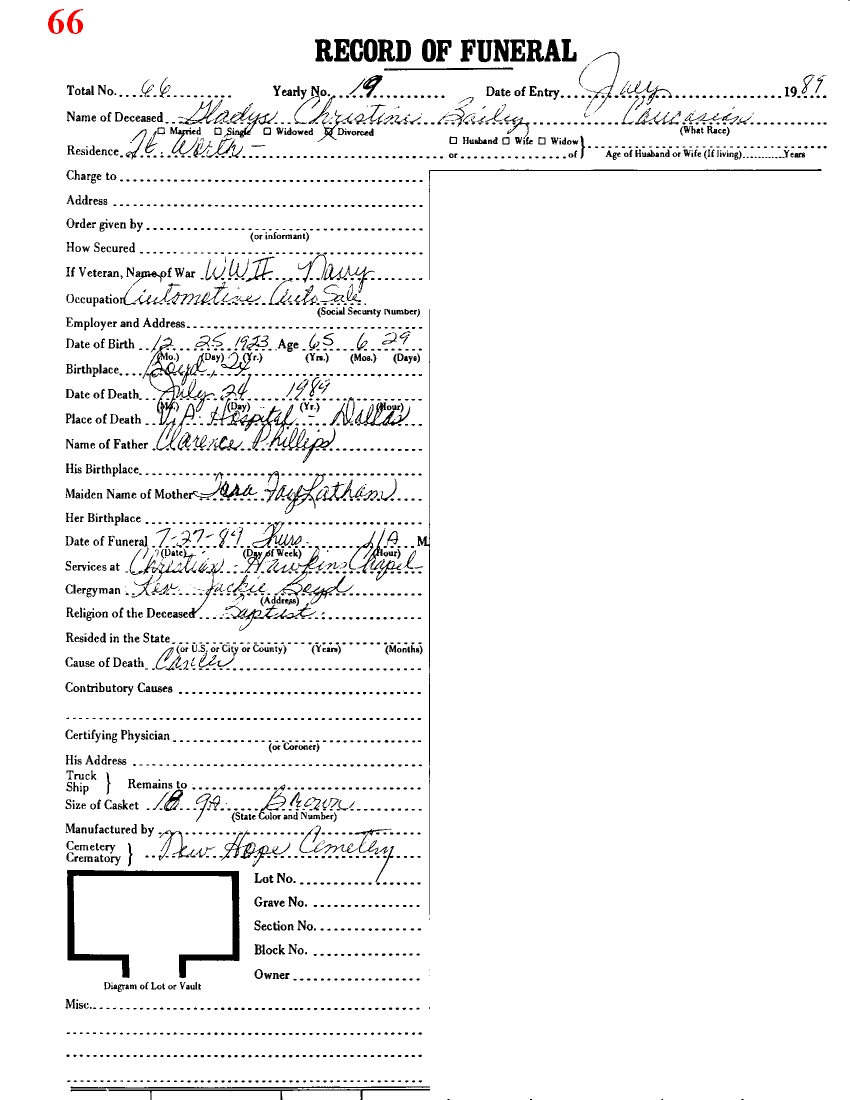 66
RECORD OF FUNERAL
Total No. 66 Yearly No. 19 Date of Entry July 1989
Name of Deceased Gladys Christine Bailey Caucasian
Married Single Widowed Divorced (What Race)
Residence Ft. Worth - Husband Wife Widow
or of Age of Husband or Wife (If living) Years
Charge to
Address
Order given by
(or informant)
How Secured
If Veteran, Name of War WWII Navy
Occupation Automotive Auto Sale
(Social Security Number)
Employer and Address
Date of Birth 12 25 1923 Age 65 6 29
(Mo.) (Day) (Yr.) (Yrs.) (Mos.) (Days)
Birthplace Boyd, Tx
Date of Death July 24 1989
(Mo.) (Day) (Yr.) (Hour)
Place of Death V.A. Hospital - Dallas
Name of Father Clarence Phillips
His Birthplace
Maiden Name of Mother Fay Latham
Her Birthplace
Date of Funeral 7-27-89 Thurs. 11 A M.
(Date) (Day of Week) (Hour)
Services at Christian - Hawkins Chapel
Clergyman Rev. Jackie Boyd
(Address)
Religion of the Deceased Baptist
Resided in the State
(or U.S. or City or County) (Years) (Months)
Cause of Death Cancer
Contributory Causes
Certifying Physician
(or Coroner)
His Address
Truck
Ship } Remains to
Size of Casket 18 ga. Brown
(State Color and Number)
Manufactured by
Cemetery
Crematory } New Hope Cemetery
Lot No.
Grave No.
Section No.
Block No.
Owner
Diagram of Lot or Vault
Misc.